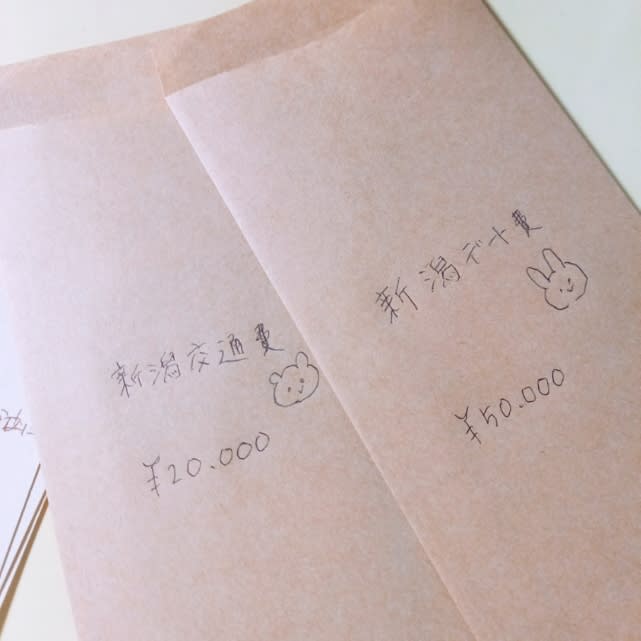 新潟交通費
¥20.000
新潟デート費
¥50.000